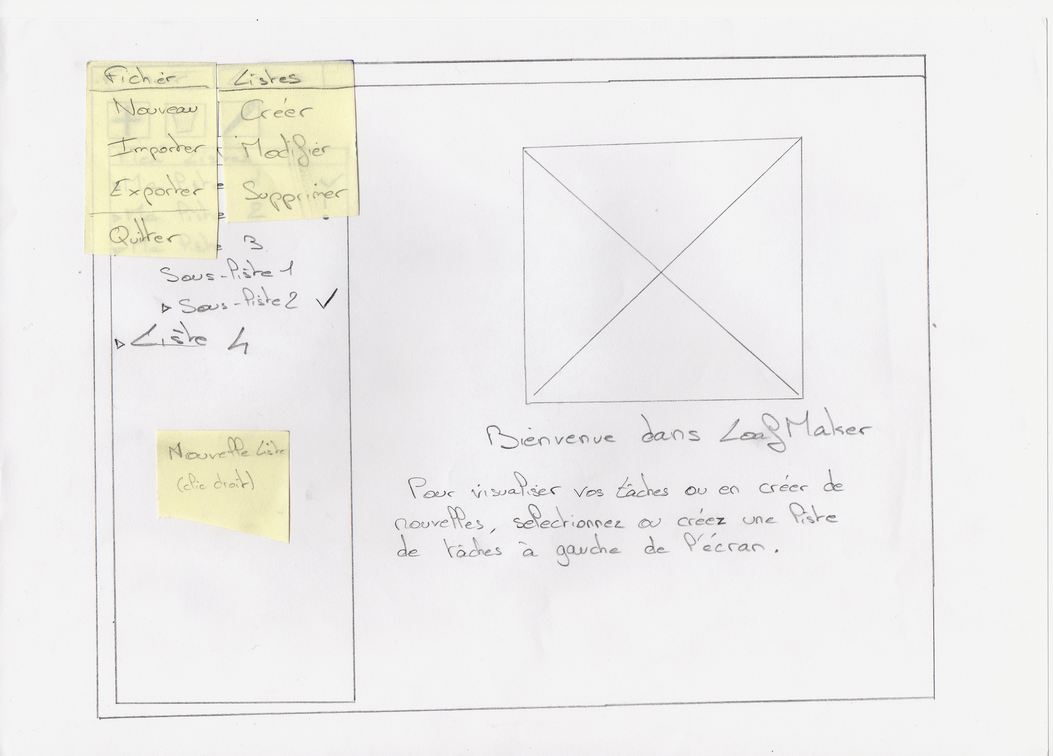 Fichier
Nouveau
Importer
Exporter
Quitter
Listes
Créer
Modifier
Supprimer
e 3
Sous-liste 1
▹ Sous-liste 2 ✓
▹ Liste 4
Nouvelle Liste
(clic droit)
Bienvenue dans LoafMaker
Pour visualiser vos tâches ou en créer de
nouvelles, sélectionnez ou créez une liste
de tâches à gauche de l'écran.